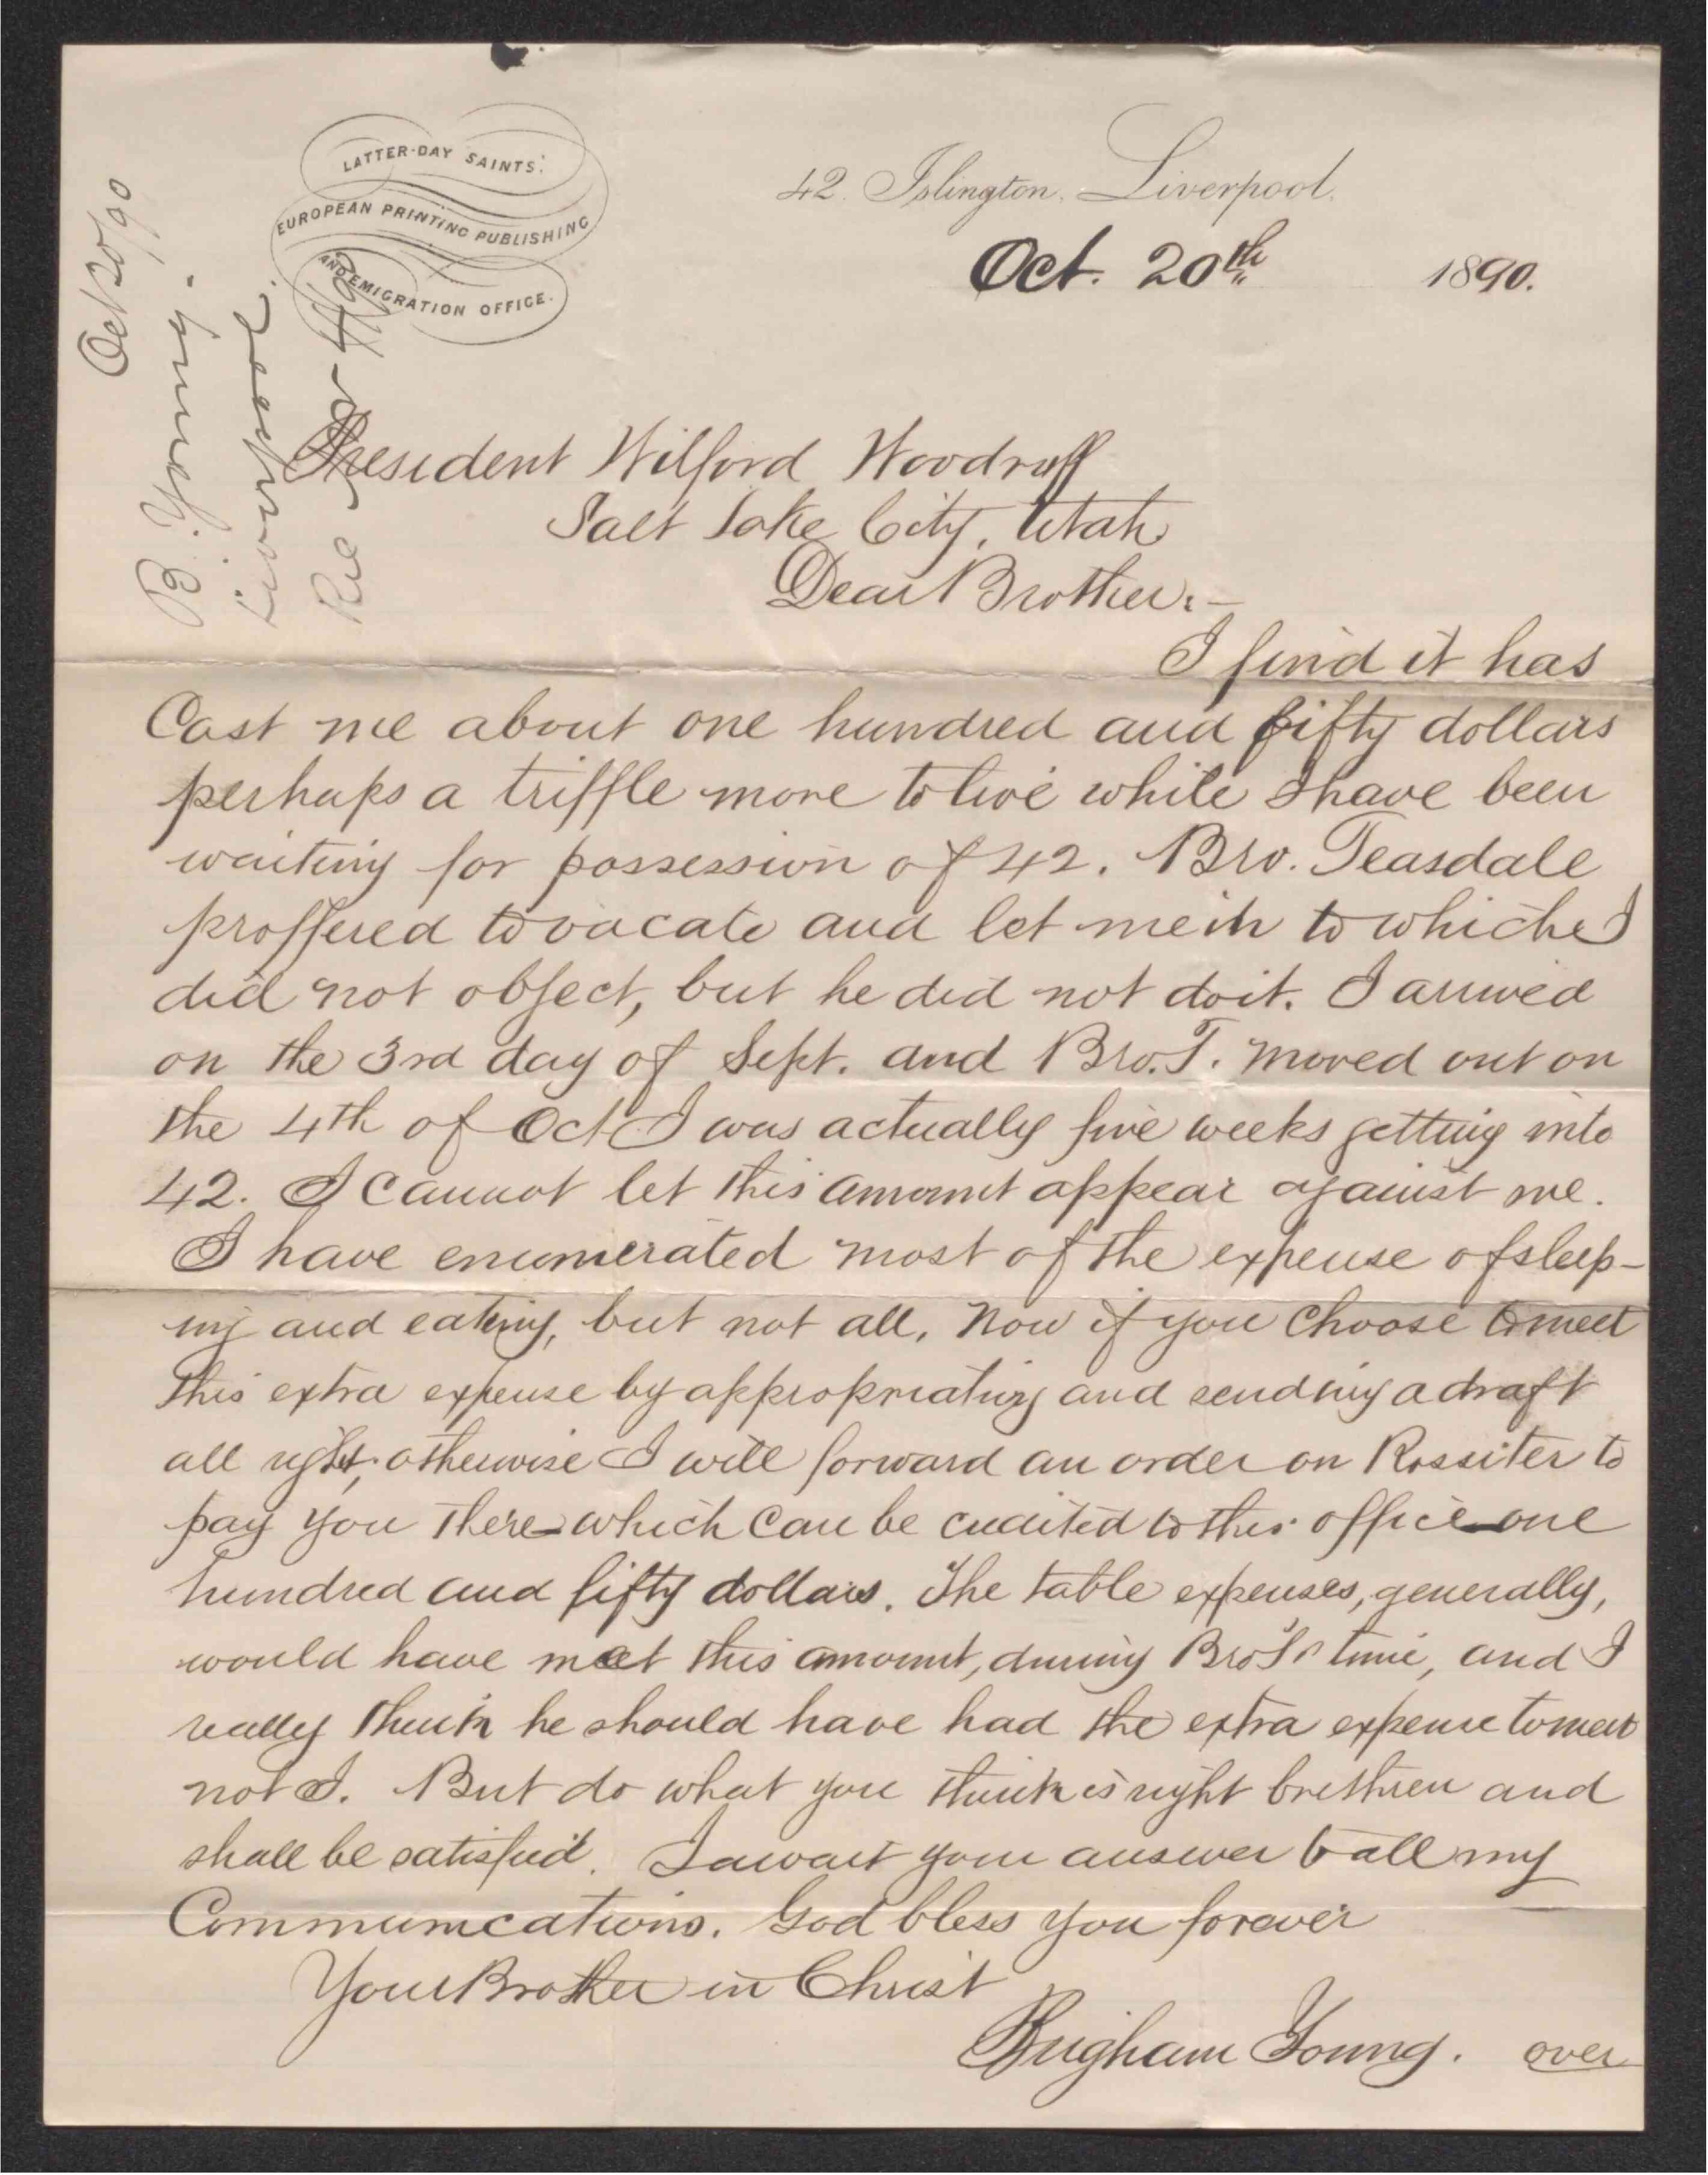 LATTER-DAY SAINTS'
EUROPEAN PRINTING PUBLISHING
AND EMIGRATION OFFICE.
42. Islington. Liverpool.
Oct. 20th 1890.
Oct 20/90
B. Young.
Liverpool.
Rec
President Wilford Woodruff
Salt Lake City, Utah
Dear Brother:—
I find it has
Cost me about one hundred and fifty dollars
perhaps a triffle more to live while I have been
waiting for possession of 42. Bro. Teasdale
proffered to vacate and let me in to which I
did not object, but he did not do it. I arrived
on the 3rd day of Sept. and Bro. T. moved out on
the 4th of Oct I was actually five weeks getting into
42. I cannot let this amount appear against me.
I have enumerated most of the expense of sleep-
ing and eating, but not all. Now if you choose to meet
this extra expense by appropriating and sending a draft
all right, otherwise I will forward an order on Rossiter to
pay you there—which can be credited to this office—one
hundred and fifty dollars. The table expenses, generally,
would have meet this amount, during Bro T's time, and I
really think he should have had the extra expense to meet
not I. But do what you think is right brethren and
shall be satisfied. I await your answer to all my
Communications. God bless you forever
Your Brother in Christ
Brigham Young. over